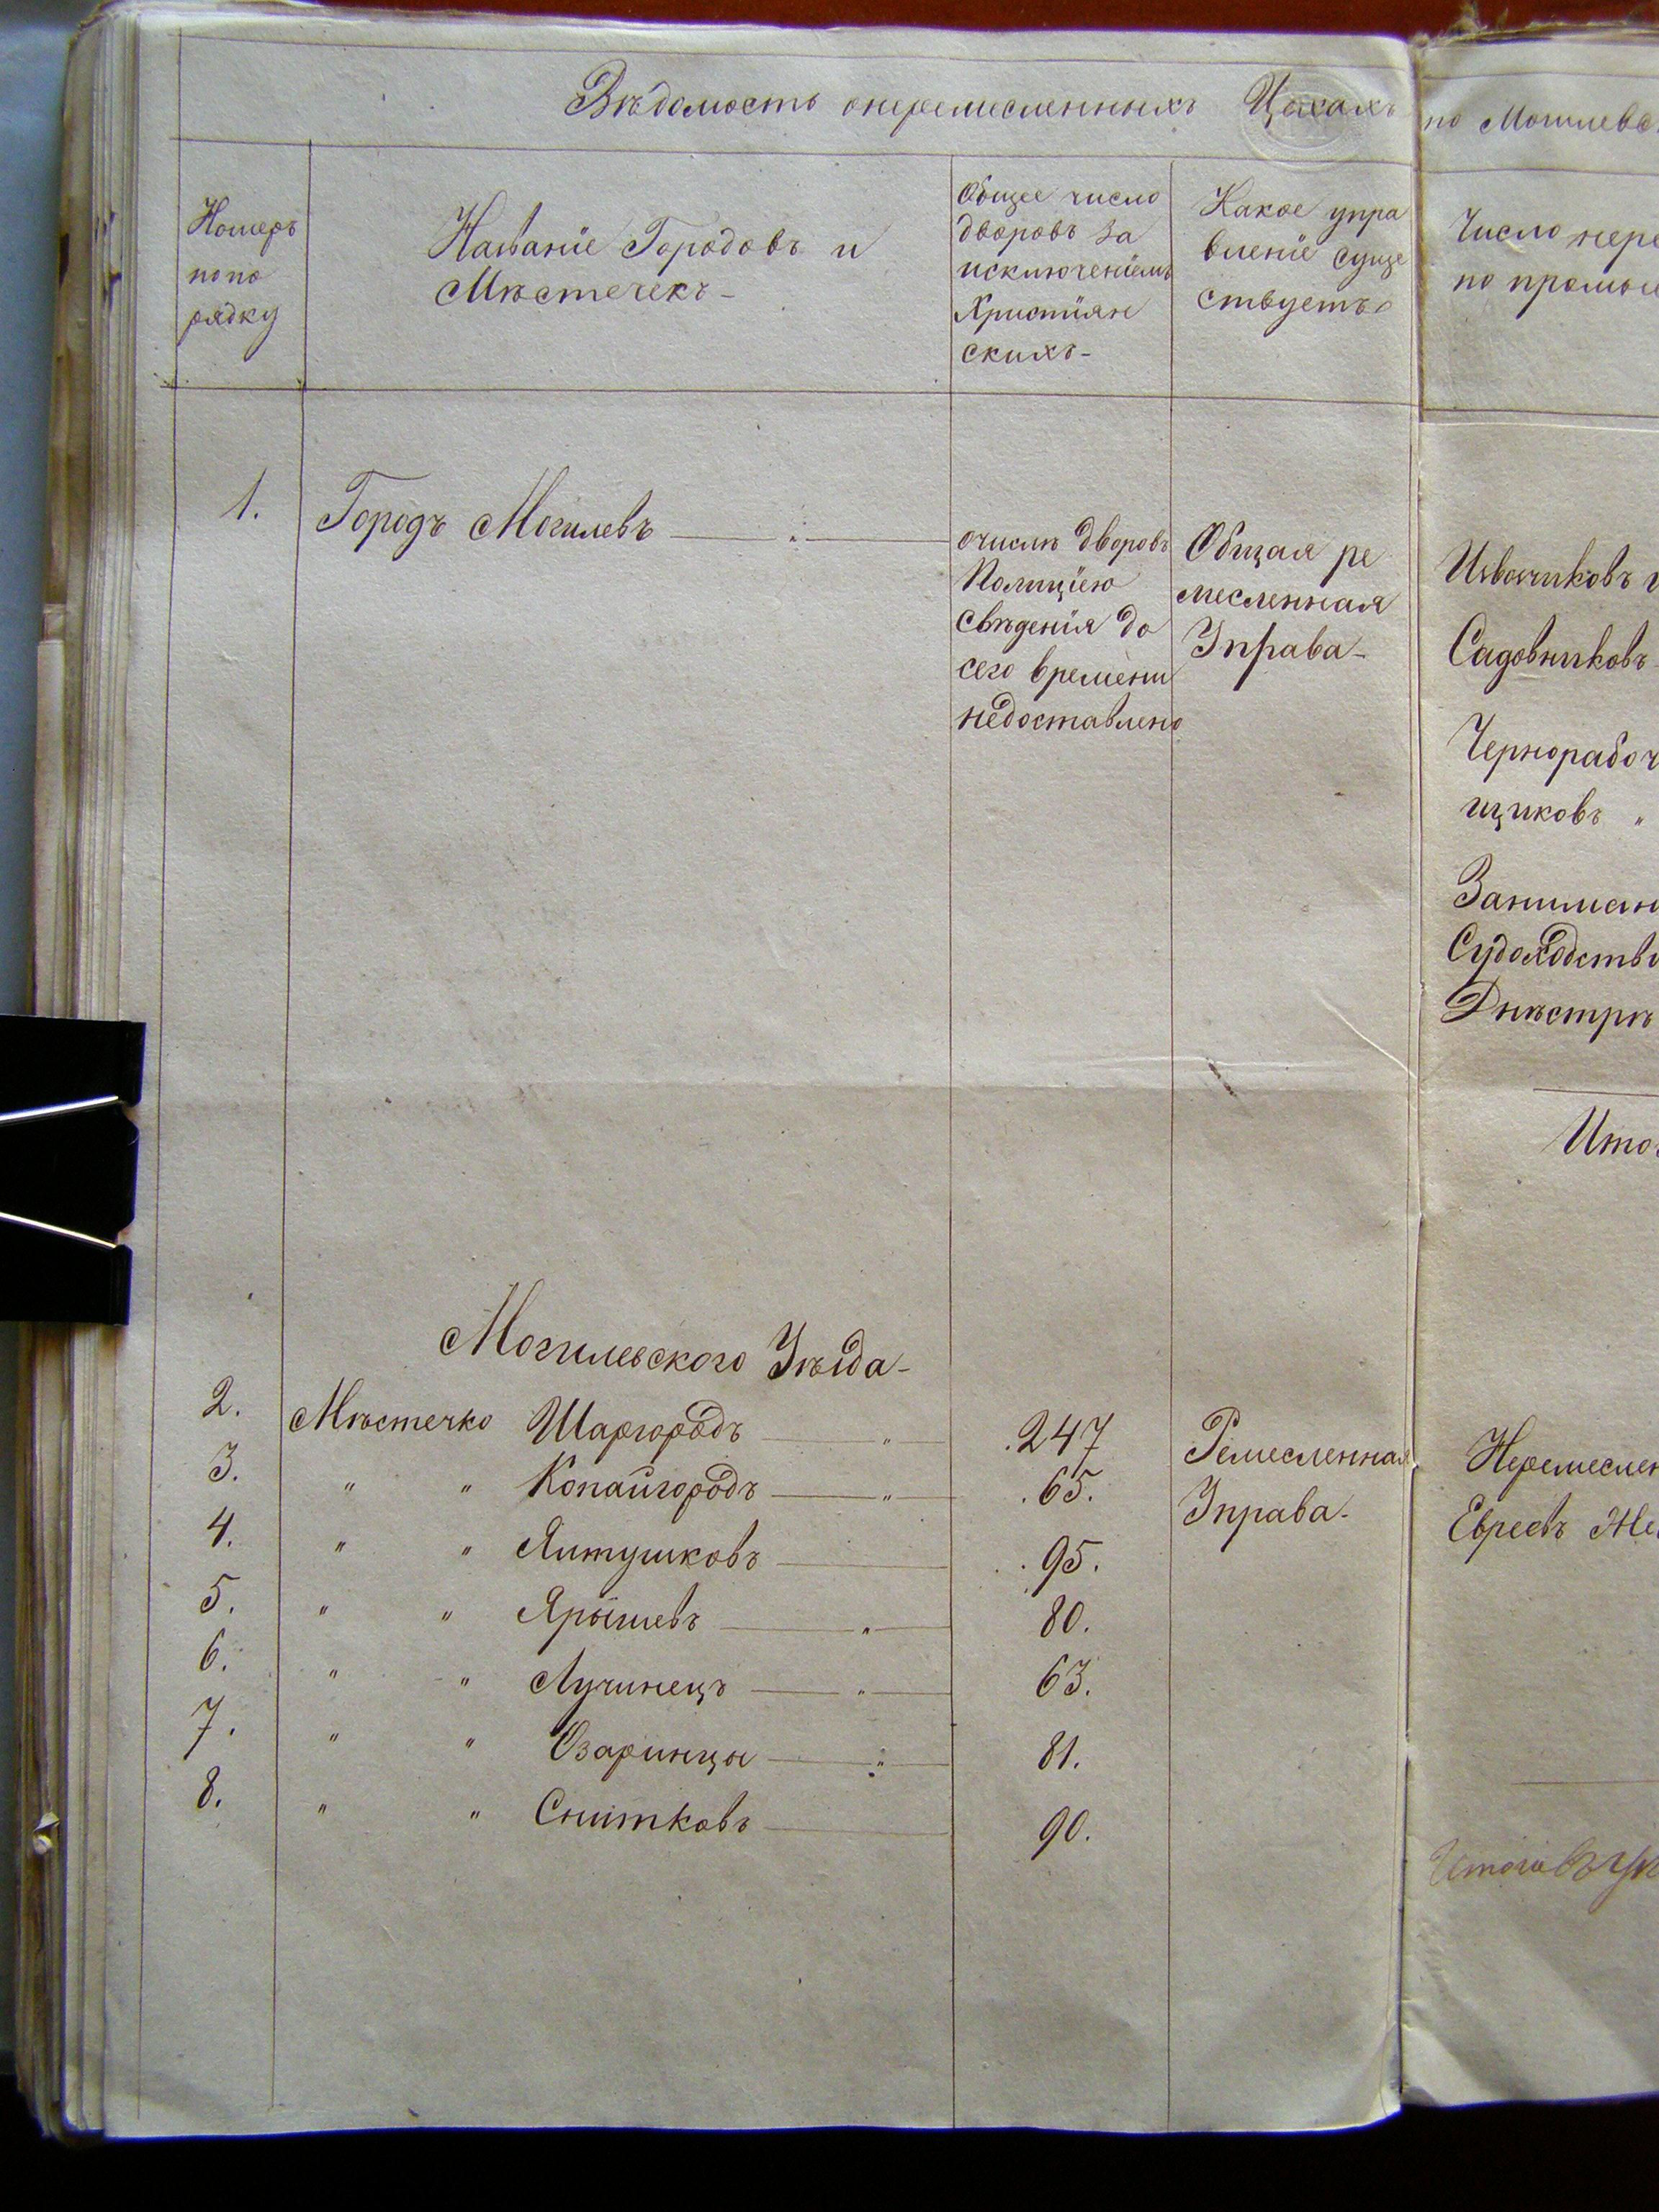 Вѣдомость онеремесленныхъ Цехахъ по Могилевс
Номеръ
попо
рядку
Названіе Городовъ и
Мѣстечекъ-
Общее число
дворовъ за
исключеніемъ
Христіян
скихъ-
Какое упра
вленіе суще
ствуетъ
Число нере
по промы
1. Городъ Могилевъ
очислѣ дворовъ
Полиціею
свѣденія до
сего времени
недоставлено
Общая ре
месленная
Управа-
Извощиковъ и
Садовниковъ
Чернорабоч
щиковъ "
Занимаю
Судоходств
Днѣстрѣ
Итог
Могилевского Уѣзда-
2. Мѣстечко Шаргородъ " 247
3. " " Копайгородъ " 65.
4. " " Ялтушковъ 95.
5. " " Ярышевъ " 80.
6. " " Лучинецъ " 63.
7. " " Озаринцы " 81.
8. " " Снитковъ 90.
Ремесленная
Управа-
Неремеслен
Евреевъ Же
Итого въ